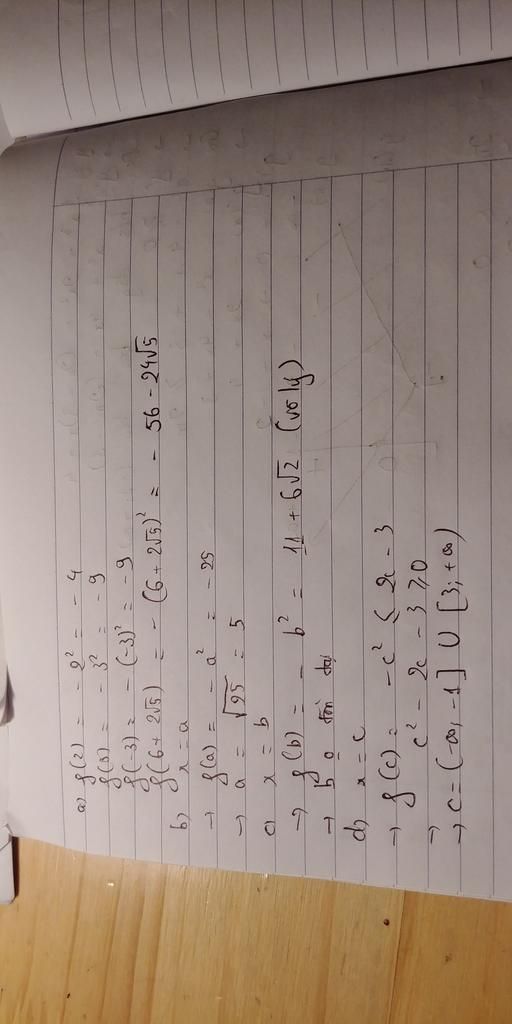 a) f(2) = -2² = -4
f(3) = -3² = -9
f(-3) = -(-3)² = -9
f(6+2√5) = -(6+2√5)² = -56-24√5
b) x = a
→ f(a) = -a² = -25
→ a = √25 = 5
c) x = b
→ f(b) = -b² = 11 + 6√2 (vô lý)
→ b 0 tồn tại
d) x = c
→ f(c) = -c² ≤ 2c - 3
→ c² - 2c - 3 ≥ 0
→ c = (-∞, -1] ∪ [3; +∞)